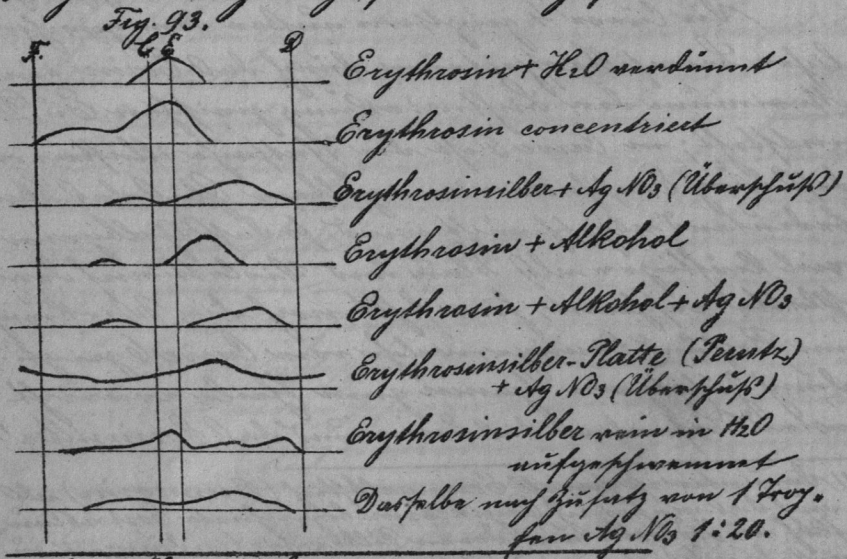 Fig. 93.
F. b E D
Erythrosin + H2O verdünnt
Erythrosin concentriert
Erythrosinsilber + AgNO3 (Überschuß)
Erythrosin + Alkohol
Erythrosin + Alkohol + AgNO3
Erythrosinsilber-Platte (Perutz)
+ AgNO3 (Überschuß)
Erythrosinsilber rein in H2O
aufgeschwemmt
Dasselbe nach Zusatz von 1 Trop-
fen AgNO3 1:20.